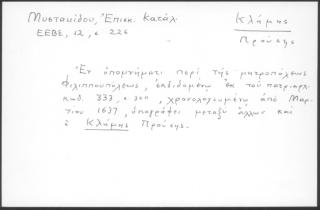 Μυστακίδου, Ἐπισκ. Κατάλ.
ΕΕΒΣ, 12, σ 226
Κλάμης
Προύσης
Ἐν ὑπομνήματι περὶ τῆς μητροπόλεως
Φιλιππουπόλεως, ἐκδιδομένῳ ἐκ τοῦ πατριαρχ.
κωδ. 333, σ 300, χρονολογουμένῳ ἀπὸ Μαρ-
τίου 1637, ὑπογράφει μεταξὺ ἄλλων καὶ
ὁ Κλάμης Προύσης.